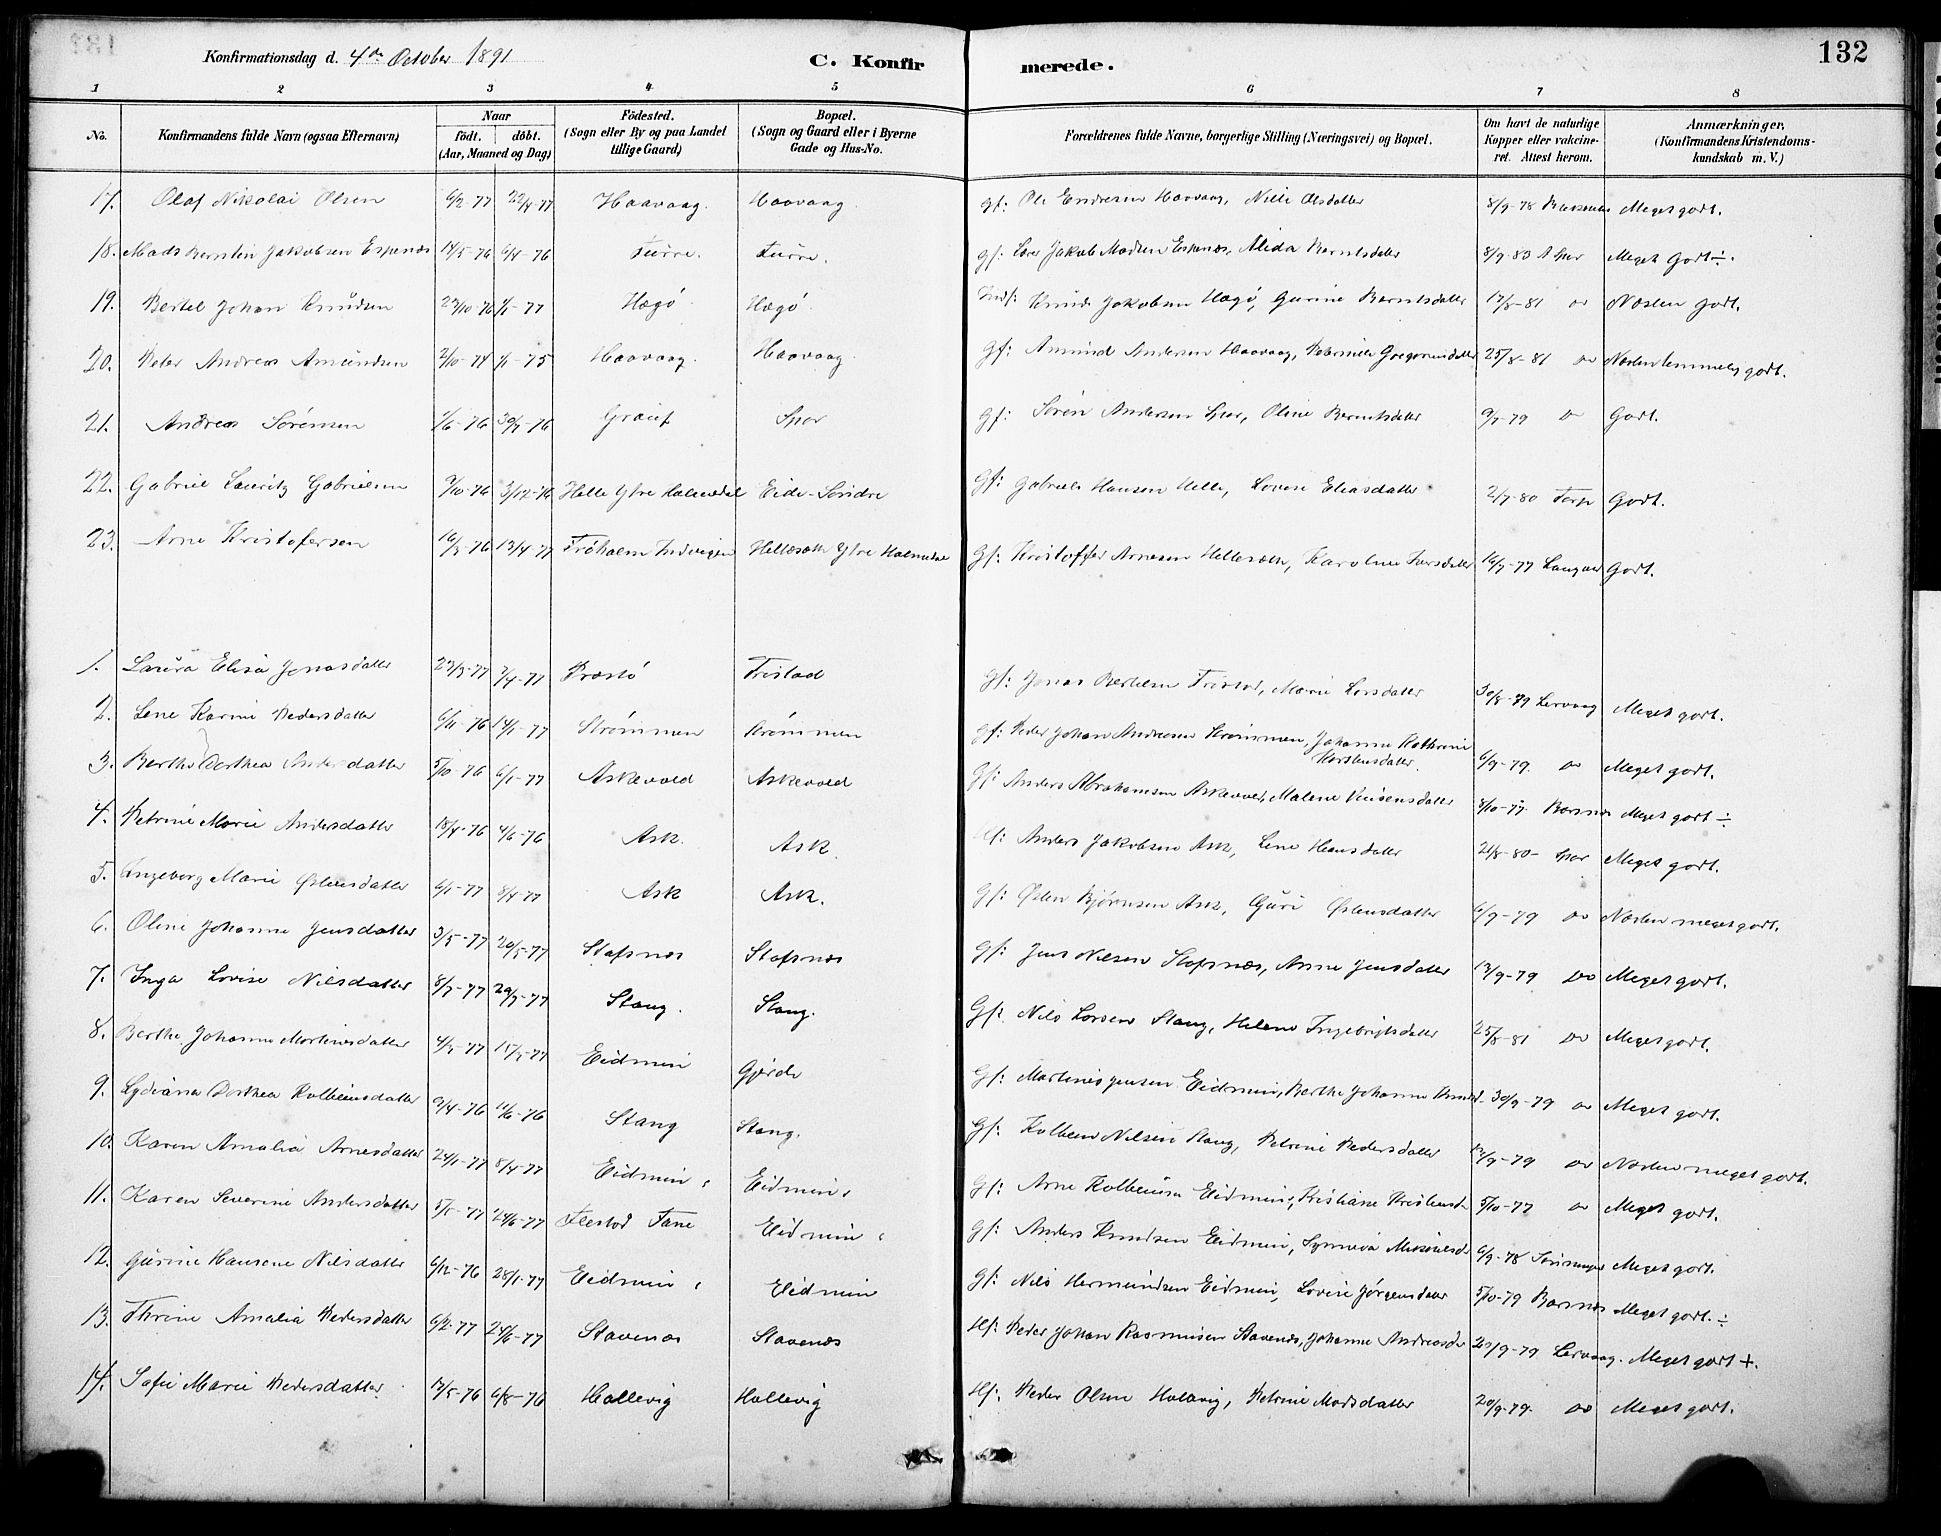 Konfirmationsdag d. 4de October 1891 C. Konfirmerede. 132
1 2 3 4 5 6 7 8
No. Konfirmandens fulde Navn (ogsaa Efternavn) Naar födt. döbt. (Aar, Maaned og Dag) Födested. (Sogn eller By og paa Landet tillige Gaard) Bopæl. (Sogn og Gaard eller i Byerne Gade og Hus-No. Forældrenes fulde Navne, borgerlige Stilling (Næringsvei) og Bopæl. Om havt de naturlige Kopper eller vakcineret. Attest herom. Anmærkninger, (Konfirmandens Kristendomskundskab m. V.)
17. Olaf Nikolai Olsen 6/2-77 22/4-77 Haavaag. Haavaag. gf: Ole Endresen Haavaag, Nille Olsdatter 8/9-78 Meget godt.
18. Mads Berntin Jakobsen Espenæs 14/5-76 6/4-76 Furre. Furre. gf: Jakob Madsen Espenæs, Alida Berntsdatter 8/9-83 Meget Godt ÷.
19. Bertel Johan Knudsen 23/10-76 1/1-77 Hægø Hægø. Knud Jakobsen Hægø, Gurine Berntsdatter 17/8-81 Do Næsten godt.
20. Peter Andreas Amundsen 2/10-74 1/1-75 Haavaag. Haavaag gf: Amund Andersen Haavaag, Gregoriusdatter 25/8-81 Do Næsten temmelig godt.
21. Andreas Sørensen 1/6-76 30/7-76 Spor gf: Søren Andersen Spor, Oline Berntsdatter 9/7-79 Do Godt.
22. Gabriel Lauritz Gabrielsen 9/10-76 3/12-76 Helle Ytre Holmedal Eide-Søndre gf: Gabriel Hansen Helle, Lovise Eliasdatter 2/7-80 Torp Godt.
23. Arne Kristofersen 16/3-76 13/4-77 Indvigen Hellesæth Ytre Holmedal gf: Kristoffer Arnesen Hellesæth, Karoline Iversdatter 16/7-77 Godt.
1. Laura Elisa Jonasdatter 23/3-77 2/4-77 Præstø Tristad gf: Jonas Bertelsen Tristad, Marie Larsdatter 30/8-79 Lervaag Meget godt.
2. Lene Karine Pedersdatter 6/11-76 14/1-77 Strømmen Strømmen gf: Peder Johan Andreasen Strømmen, Johanne Kathrine Karstensdatter. 6/9-79. Do Meget godt.
3. Berthe Dorthea Andersdatter 5/10-76 6/1-77 Askevold Askevold gf: Anders Abrahamsen Askevold, Malene 8/10-77. Barsnes Meget godt ÷
4. Petrine Marie Andersdatter 18/4-76 4/6-76 Ask. Ask. Anders Jakobsen Ask, Lene Hansdatter 21/8-80- Spor Meget godt.
5. Ingeborg Marie Østensdatter 6/1-77 8/4-77 Ask Ask. gf: Østen Bjørnsen Ask, Guri Østensdatter 6/9-79 Do Næsten meget godt.
6. Oline Johanne Jensdatter 3/5-77 20/5-77 Stafsnæs Stafsnæs gf: Jens Nilsen Stafsnæs, Anne Jensdatter 13/9-79 Do Meget godt.
7. Inga Lovise Nilsdatter 8/7-77 29/7-77 Stang. Stang. Gf: Nils Larsen Stang, Helene Ingebrigtsdatter 25/8-81 Do Meget godt.
8. Berthe Johanne Martinusdatter 4/3-77 15/7-77 Eidmin Gjerde Gf: Martinus Jensen Eidmin, Berthe Johanne 30/9-79 Do Meget godt.
9. Lydiana Dorthea Kolbeinsdatter 9/4-76 11/6-76 Stang Stang. Gf: Kolbein Nilsen Stang, Petrine Pedersdatter 13/9-79 Do Næsten meget godt.
10. Karen Amalia Arnesdatter 24/1-77 8/4-77 Eidmin Eidmin Gf: Arne Kolbeinsen Eidmin, Kristiane 5/10-77 Do Meget godt.
11. Karen Severine Andersdatter 5/5-77 24/6-77 Eidmin Gf: Anders Knudsen Eidmin, Synneva 6/9-78 Meget godt.
12. Gurine Hansene Nilsdatter 6/12-76 28/1-77 Eidmin Eidmin Gf: Nils Hermundsen Eidmin, Lovise Jørgensdatter 5/10-79 Barsnæs Meget godt. ÷
13. Thrine Amalia Pedersdatter 6/2-77 24/6-77 Stavenæs Stavenæs Hf: Peder Johan Rasmusen Stavenæs, Johanne Andreasdr 20/9-79 Lervaag. Meget godt +.
14. Sofie Marie Pedersdatter 17/5-76 6/8-76 Hallevig Hallevig Hf. Peder Olsen Hallevig, Petrine Madsdatter 20/9-79. Do Meget godt.